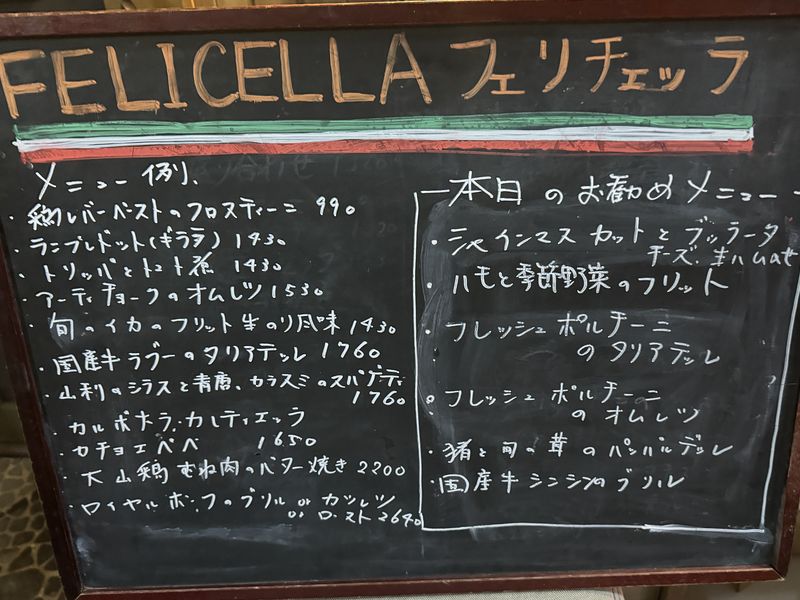 FELICELLA フェリチェッラ
メニュー例、
・鶏レバーペーストのクロスティーニ 990
・ランプレドット(ギアラ) 1430
・トリッパとトマト煮 1430
・アーティチョークのオムレツ 1530
・旬のイカのフリット生のり風味 1430
・国産牛ラグーのタリアテッレ 1760
・山利のシラスと青唐、カラスミのスパゲティ
1760
・カルボナーラ・カレティエッラ
・カチョエペペ 1650
・大山鶏むね肉のバター焼き 2200
・ロイヤルポークのグリル or カツレツ
or ロースト 2640
本日のお勧めメニュー
・シャインマスカットとブッラータ
チーズ、生ハムのせ
・ハモと季節野菜のフリット
・フレッシュポルチーニ
のタリアテッレ
・フレッシュポルチーニ
のオムレツ
・猪と旬の茸のパッパルデッレ
・国産牛シンシンのグリル